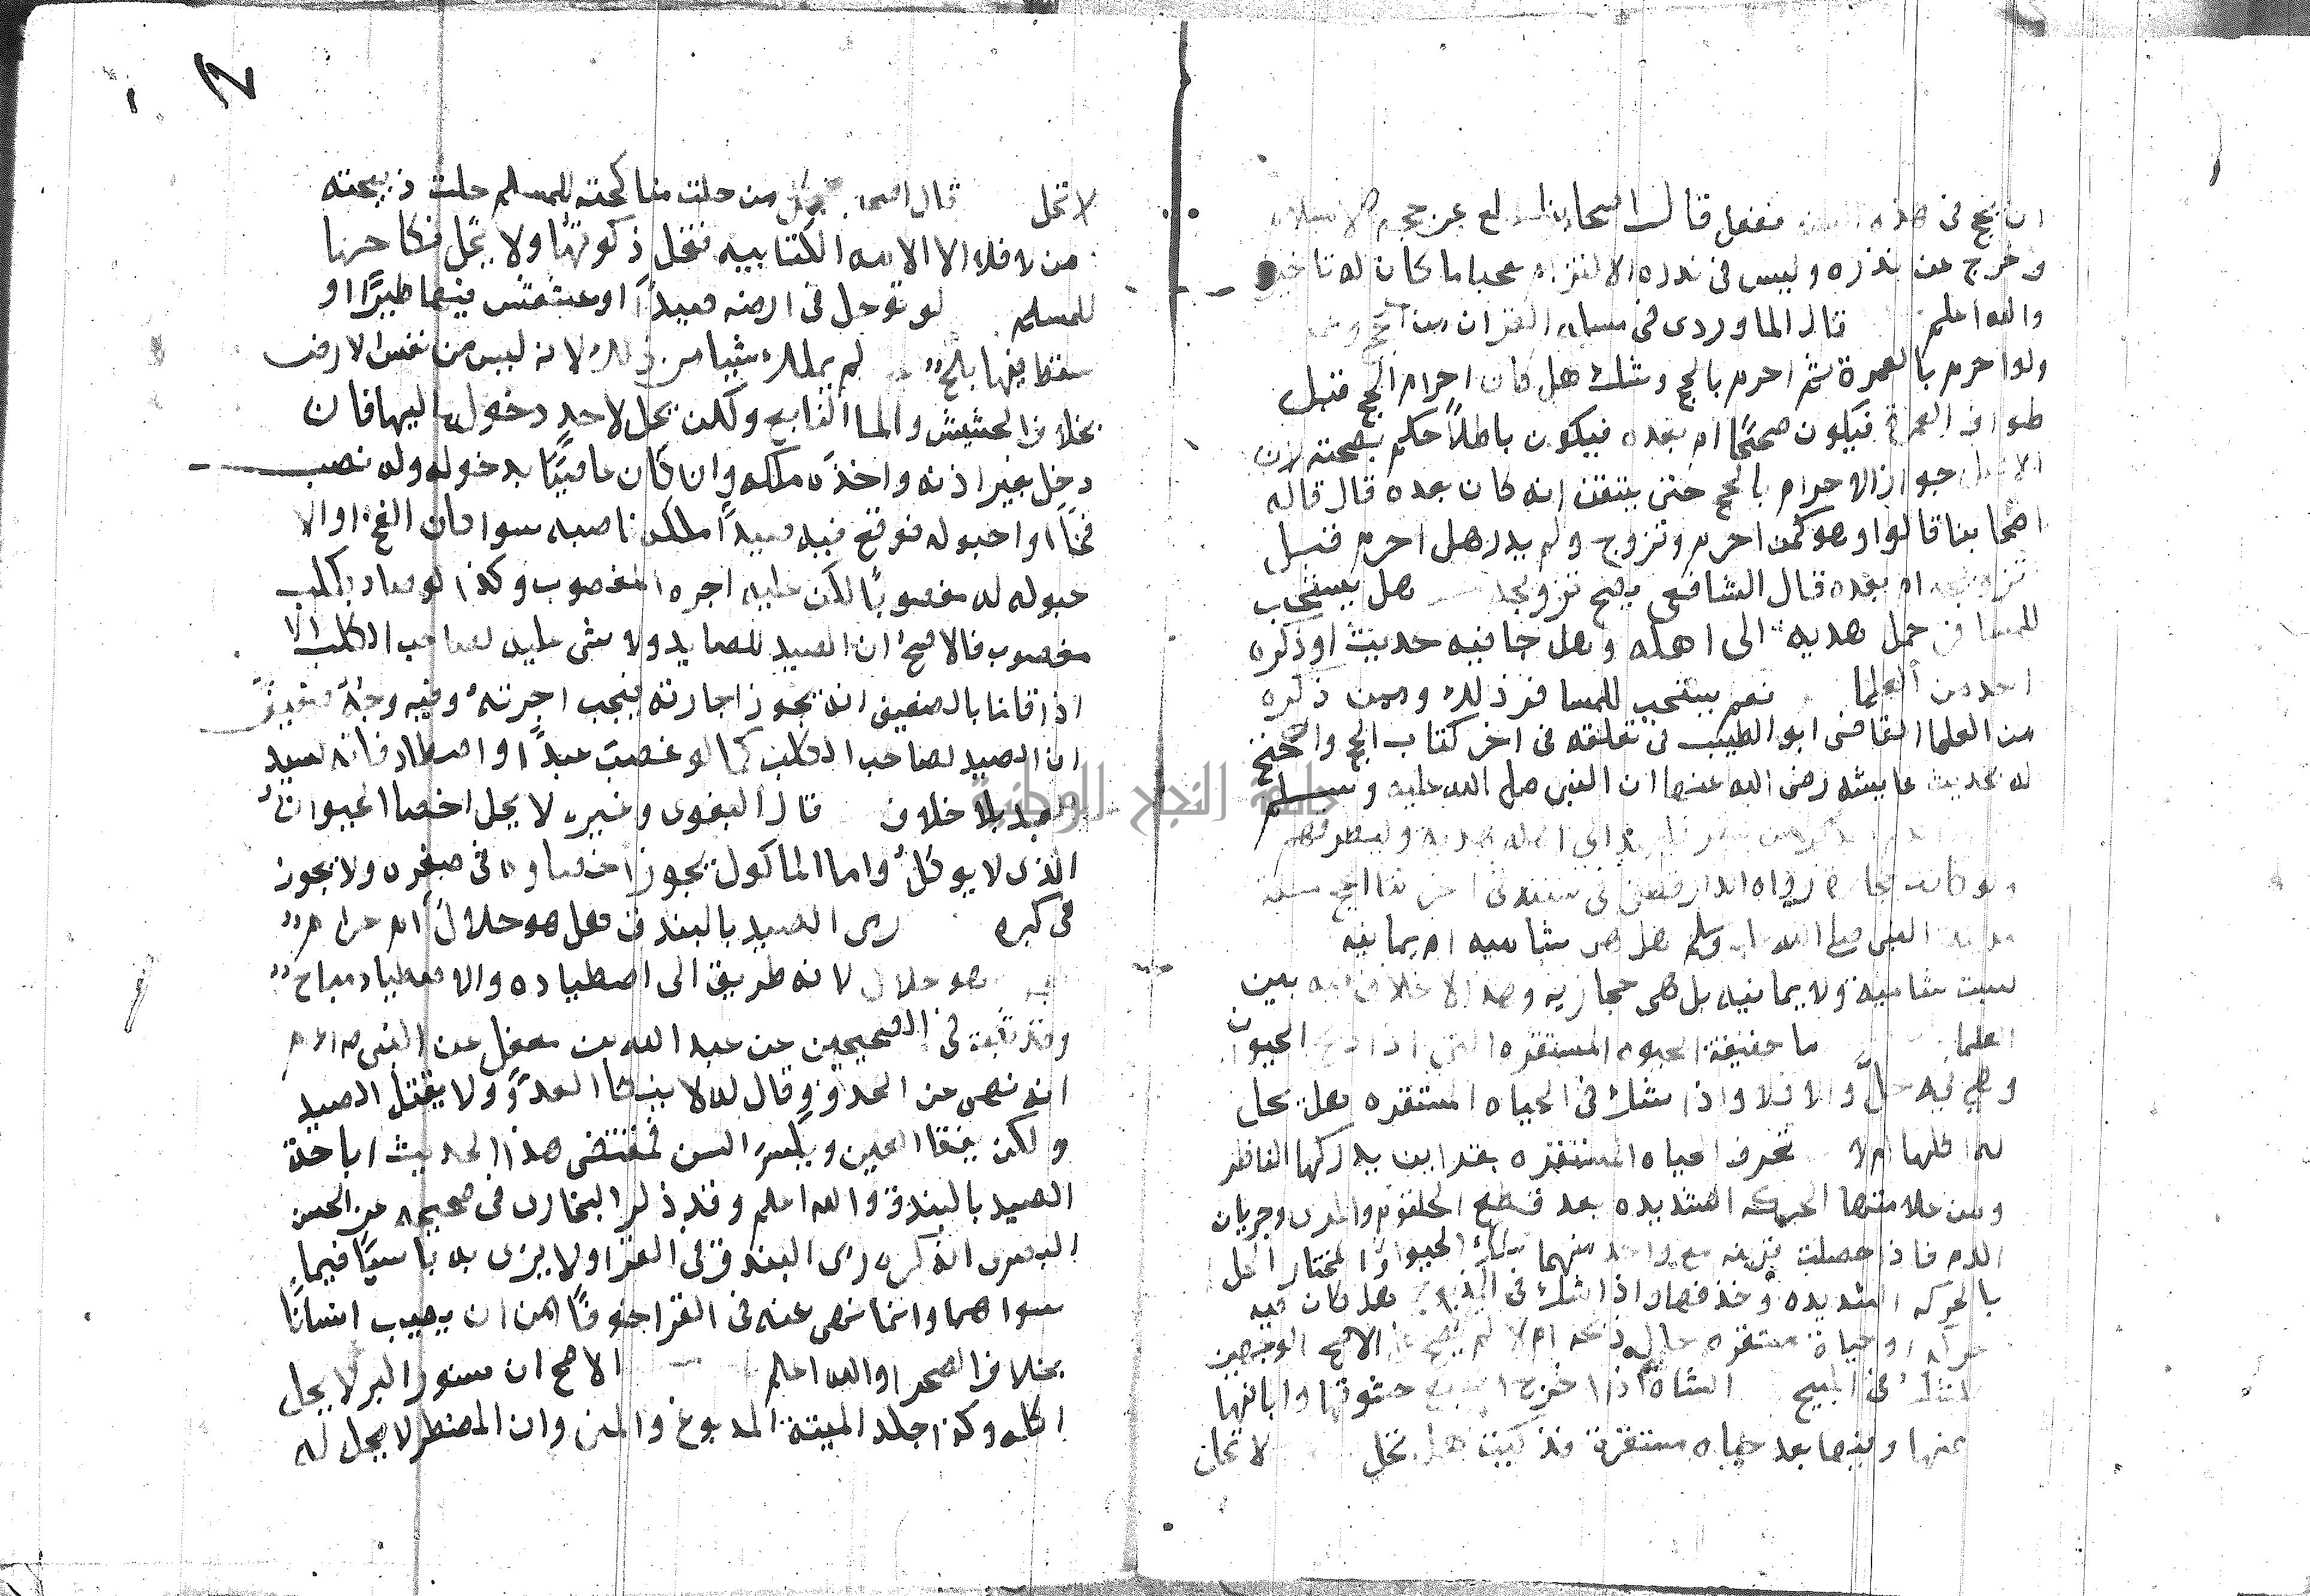 ان يحج في هذه السنة ففعل قال اصحابنا وقع عن حجه الاسلام
وخرج عن نذره وليس في نذره الا التزام تعجيل ما كان له تاخيره
والله اعلم قال الماوردي في مسايل القران من الحج
ولو احرم بالعمرة ثم احرم بالحج وشك هل كان احرام الحج قبل
طواف العمرة فيكون صحيحًا ام بعده فيكون باطلاً حكم بصحته لان
الاصل جواز الاحرام بالحج حتى يتيقن انه كان بعده قال قاله
اصحابنا قالوا وهو كمن احرم وتزوج ولم يدر هل احرم قبل
تزويجه ام بعده قال الشافعي يصح تزويجه هل يستحب
للمسافر حمل هدية الى اهله وهل جا فيه حديث او ذكره
احد من العلما نعم يستحب للمسافر ذلك وممن ذكره
من العلما القاضي ابو الطيب في تعليقه في اخر كتاب الحج واحتج
له بحديث عايشه رضي الله عنها ان النبي صلى الله عليه وسلم
من سفر الى اهله هدية وليطرفهم
ولو كانت حجارة رواه الدارقطني في سننه في اخر كتاب الحج مسلة
مدينة النبي صلى الله عليه وسلم هل هي شاميه ام يمانيه
ليست شاميه ولا يمانيه بل هي حجازيه وهذا لا خلاف فيه بين
العلما ما حقيقة الحيوه المستقره التي اذا ذبح الحيوان
وهي فيه حلّ والا فلا واذا شك في الحياه المستقره هل يحل
له اكلها ام لا تعرف الحياه المستقره بقراين يدركها الناظر
ومن علامتها الحركه الشديده بعد قطع الحلقوم والمري وجريان
الدم فاذا حصلت قرينه مع واحد منهما الحيوان والمختار الحل
بالحركه الشديده وحدها واذا شك في المذبوح هل كان فيه
حركه وحياة مستقره حال ذبحه ام لا لم يبح على الاصح الوجهين
للشك في المبيح الشاة اذا اخرج السبع حشوتها وابانها
عنها وفيها بعد حياه مستقرة فذكيت هل تحل لا تحل
لا تحل قال اصحابنا كل من حلت مناكحته للمسلم حلت ذبيحته
من لا فلا الا الامه الكتابيه فتحل ذكوتها ولا يحل نكاحها
للمسلم لو توحل في ارضه صيداً او عشعش فيها طيرًا او
سقط فيها بلح لم يملك شيا من ذلك لانه ليس من نفس الارض
بخلاف الحشيش والما النابع ولكن يحل لاحد دخوله اليها فان
دخل بغير اذنه واخذه ملكه وان كان عاصيًا بدخوله ولو نصب
فخًا او احبوله فوقع فيه صيداً ملكه ناصبه سوا كان الفخ او الا
حبوله له مغصوبًا لكن عليه اجره المغصوب وكذا لو صاد بكلب
مغصوب فالاصح ان الصيد للصايد ولا شي عليه لصاحب الكلب الا
اذا قلنا بالضعيف انه يجوز اجارته فيجب اجرته وفيه وجهٌ ضعيف
ان الصيد لصاحب الكلب كما لو غصب عبدًا او اصطاد فانه لسيد
العبد بلا خلاف قال البغوي وغيره لا يحل اخصا الحيوان
الذي لا يوكل واما الماكول يجوز اخصاوه في صغره ولا يجوز
في كبره رمي الصيد بالبندق هل هو حلال ام حرام
هو حلال لانه طريق الى اصطياده والاصطياد مباح
وقد ثبت في الصحيحين عن عبد الله بن مغفل عن النبي
انه نهى عن الحذف وقال انه لا ينكا العدوّ ولا يقتل الصيد
ولكن يفقا العين ويكسر السن فمقتضى هذا الحديث اباحة
الصيد بالبندق والله اعلم وقد ذكر البخاري في صحيحه عن الحسن
البصري انه كره رمي البندق في القرا ولا يرى به باسًا فيما
سواهما وانما نهى عنه في القرا خوفًا من ان يصيب انسانًا
بخلاف الصحرا والله اعلم الاصح ان سنور البر لا يحل
اكله وكذا جلد الميتة المدبوغ والمني وان المضطر لا يحل له
جامعة النجاح الوطنية